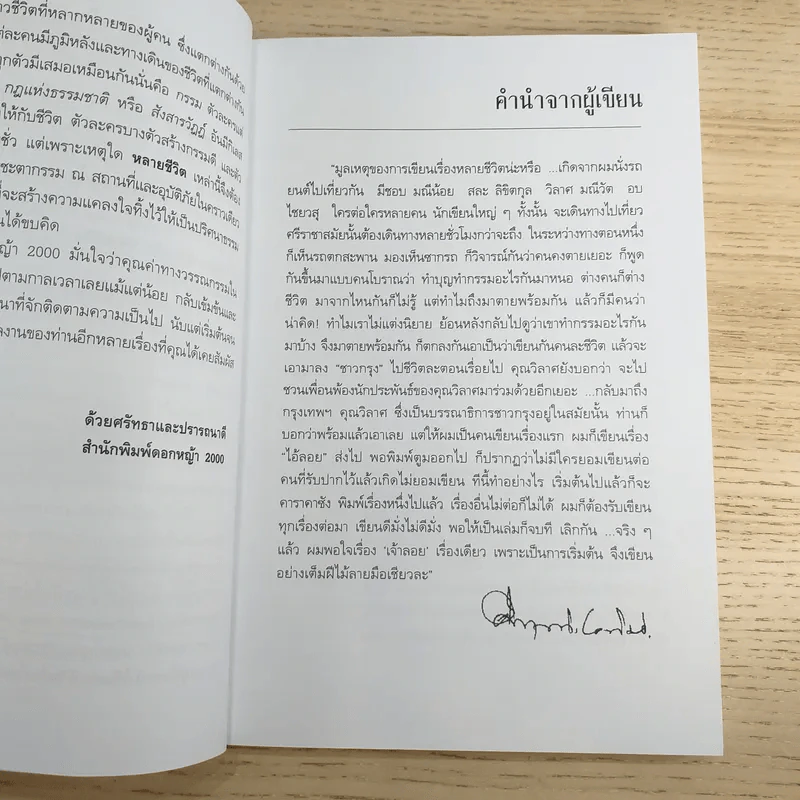 าวชีวิตที่หลากหลายของผู้คน ซึ่งแตกต่างกันด้วย
ต่ละคนมีภูมิหลังและทางเดินของชีวิตที่แตกต่างกัน
ทุกตัวมีเสมอเหมือนกันนั่นคือ กรรม ตัวละครแต่
กฎแห่งธรรมชาติ หรือ สังสารวัฏฏ์ อันมีกิเลส
ให้กับชีวิต ตัวละครบางตัวสร้างกรรมดี และตัว
ชั่ว แต่เพราะเหตุใด หลายชีวิต เหล่านี้จึงต้อง
ชะตากรรม ณ สถานที่และอุบัติภัยในคราวเดียว
ที่จะสร้างความแคลงใจทิ้งไว้ให้เป็นปริศนาธรรม
นได้ขบคิด
หญ้า 2000 มั่นใจว่าคุณค่าทางวรรณกรรมใน
ปตามกาลเวลาเลยแม้แต่น้อย กลับเข้มข้นและ
นาที่จักติดตามความเป็นไป นับแต่เริ่มต้นจน
ลงานของท่านอีกหลายเรื่องที่คุณได้เคยสัมผัส
ด้วยศรัทธาและปรารถนาดี
สำนักพิมพ์ดอกหญ้า 2000
คำนำจากผู้เขียน
“มูลเหตุของการเขียนเรื่องหลายชีวิตน่ะหรือ ...เกิดจากผมนั่งรถ
ยนต์ไปเที่ยวกัน มีชอบ มณีน้อย สละ ลิขิตกุล วิลาศ มณีวัต อบ
ไชยวสุ ใครต่อใครหลายคน นักเขียนใหญ่ ๆ ทั้งนั้น จะเดินทางไปเที่ยว
ศรีราชาสมัยนั้นต้องเดินทางหลายชั่วโมงกว่าจะถึง ในระหว่างทางตอนหนึ่ง
ก็เห็นรถตกสะพาน มองเห็นซากรถ ก็วิจารณ์กันว่าคนคงตายเยอะ ก็พูด
กันขึ้นมาแบบคนโบราณว่า ทำบุญทำกรรมอะไรกันมาหนอ ต่างคนก็ต่าง
ชีวิต มาจากไหนกันก็ไม่รู้ แต่ทำไมถึงมาตายพร้อมกัน แล้วก็มีคนว่า
น่าคิด! ทำไมเราไม่แต่งนิยาย ย้อนหลังกลับไปดูว่าเขาทำกรรมอะไรกัน
มาบ้าง จึงมาตายพร้อมกัน ก็ตกลงกันเอาเป็นว่าเขียนกันคนละชีวิต แล้วจะ
เอามาลง “ชาวกรุง” ไปชีวิตละตอนเรื่อยไป คุณวิลาศยังบอกว่า จะไป
ชวนเพื่อนพ้องนักประพันธ์ของคุณวิลาศมาร่วมด้วยอีกเยอะ ...กลับมาถึง
กรุงเทพฯ คุณวิลาศ ซึ่งเป็นบรรณาธิการชาวกรุงอยู่ในสมัยนั้น ท่านก็
บอกว่าพร้อมแล้วเอาเลย แต่ให้ผมเป็นคนเขียนเรื่องแรก ผมก็เขียนเรื่อง
“ไอ้ลอย” ส่งไป พอพิมพ์ตูมออกไป ก็ปรากฏว่าไม่มีใครยอมเขียนต่อ
คนที่รับปากไว้แล้วเกิดไม่ยอมเขียน ทีนี้ทำอย่างไร เริ่มต้นไปแล้วก็จะ
คาราคาซัง พิมพ์เรื่องหนึ่งไปแล้ว เรื่องอื่นไม่ต่อก็ไม่ได้ ผมก็ต้องรับเขียน
ทุกเรื่องต่อมา เขียนดีมั่งไม่ดีมั่ง พอให้เป็นเล่มก็จบที เลิกกัน ...จริง ๆ
แล้ว ผมพอใจเรื่อง ‘เจ้าลอย’ เรื่องเดียว เพราะเป็นการเริ่มต้น จึงเขียน
อย่างเต็มฝีไม้ลายมือเชียวละ”